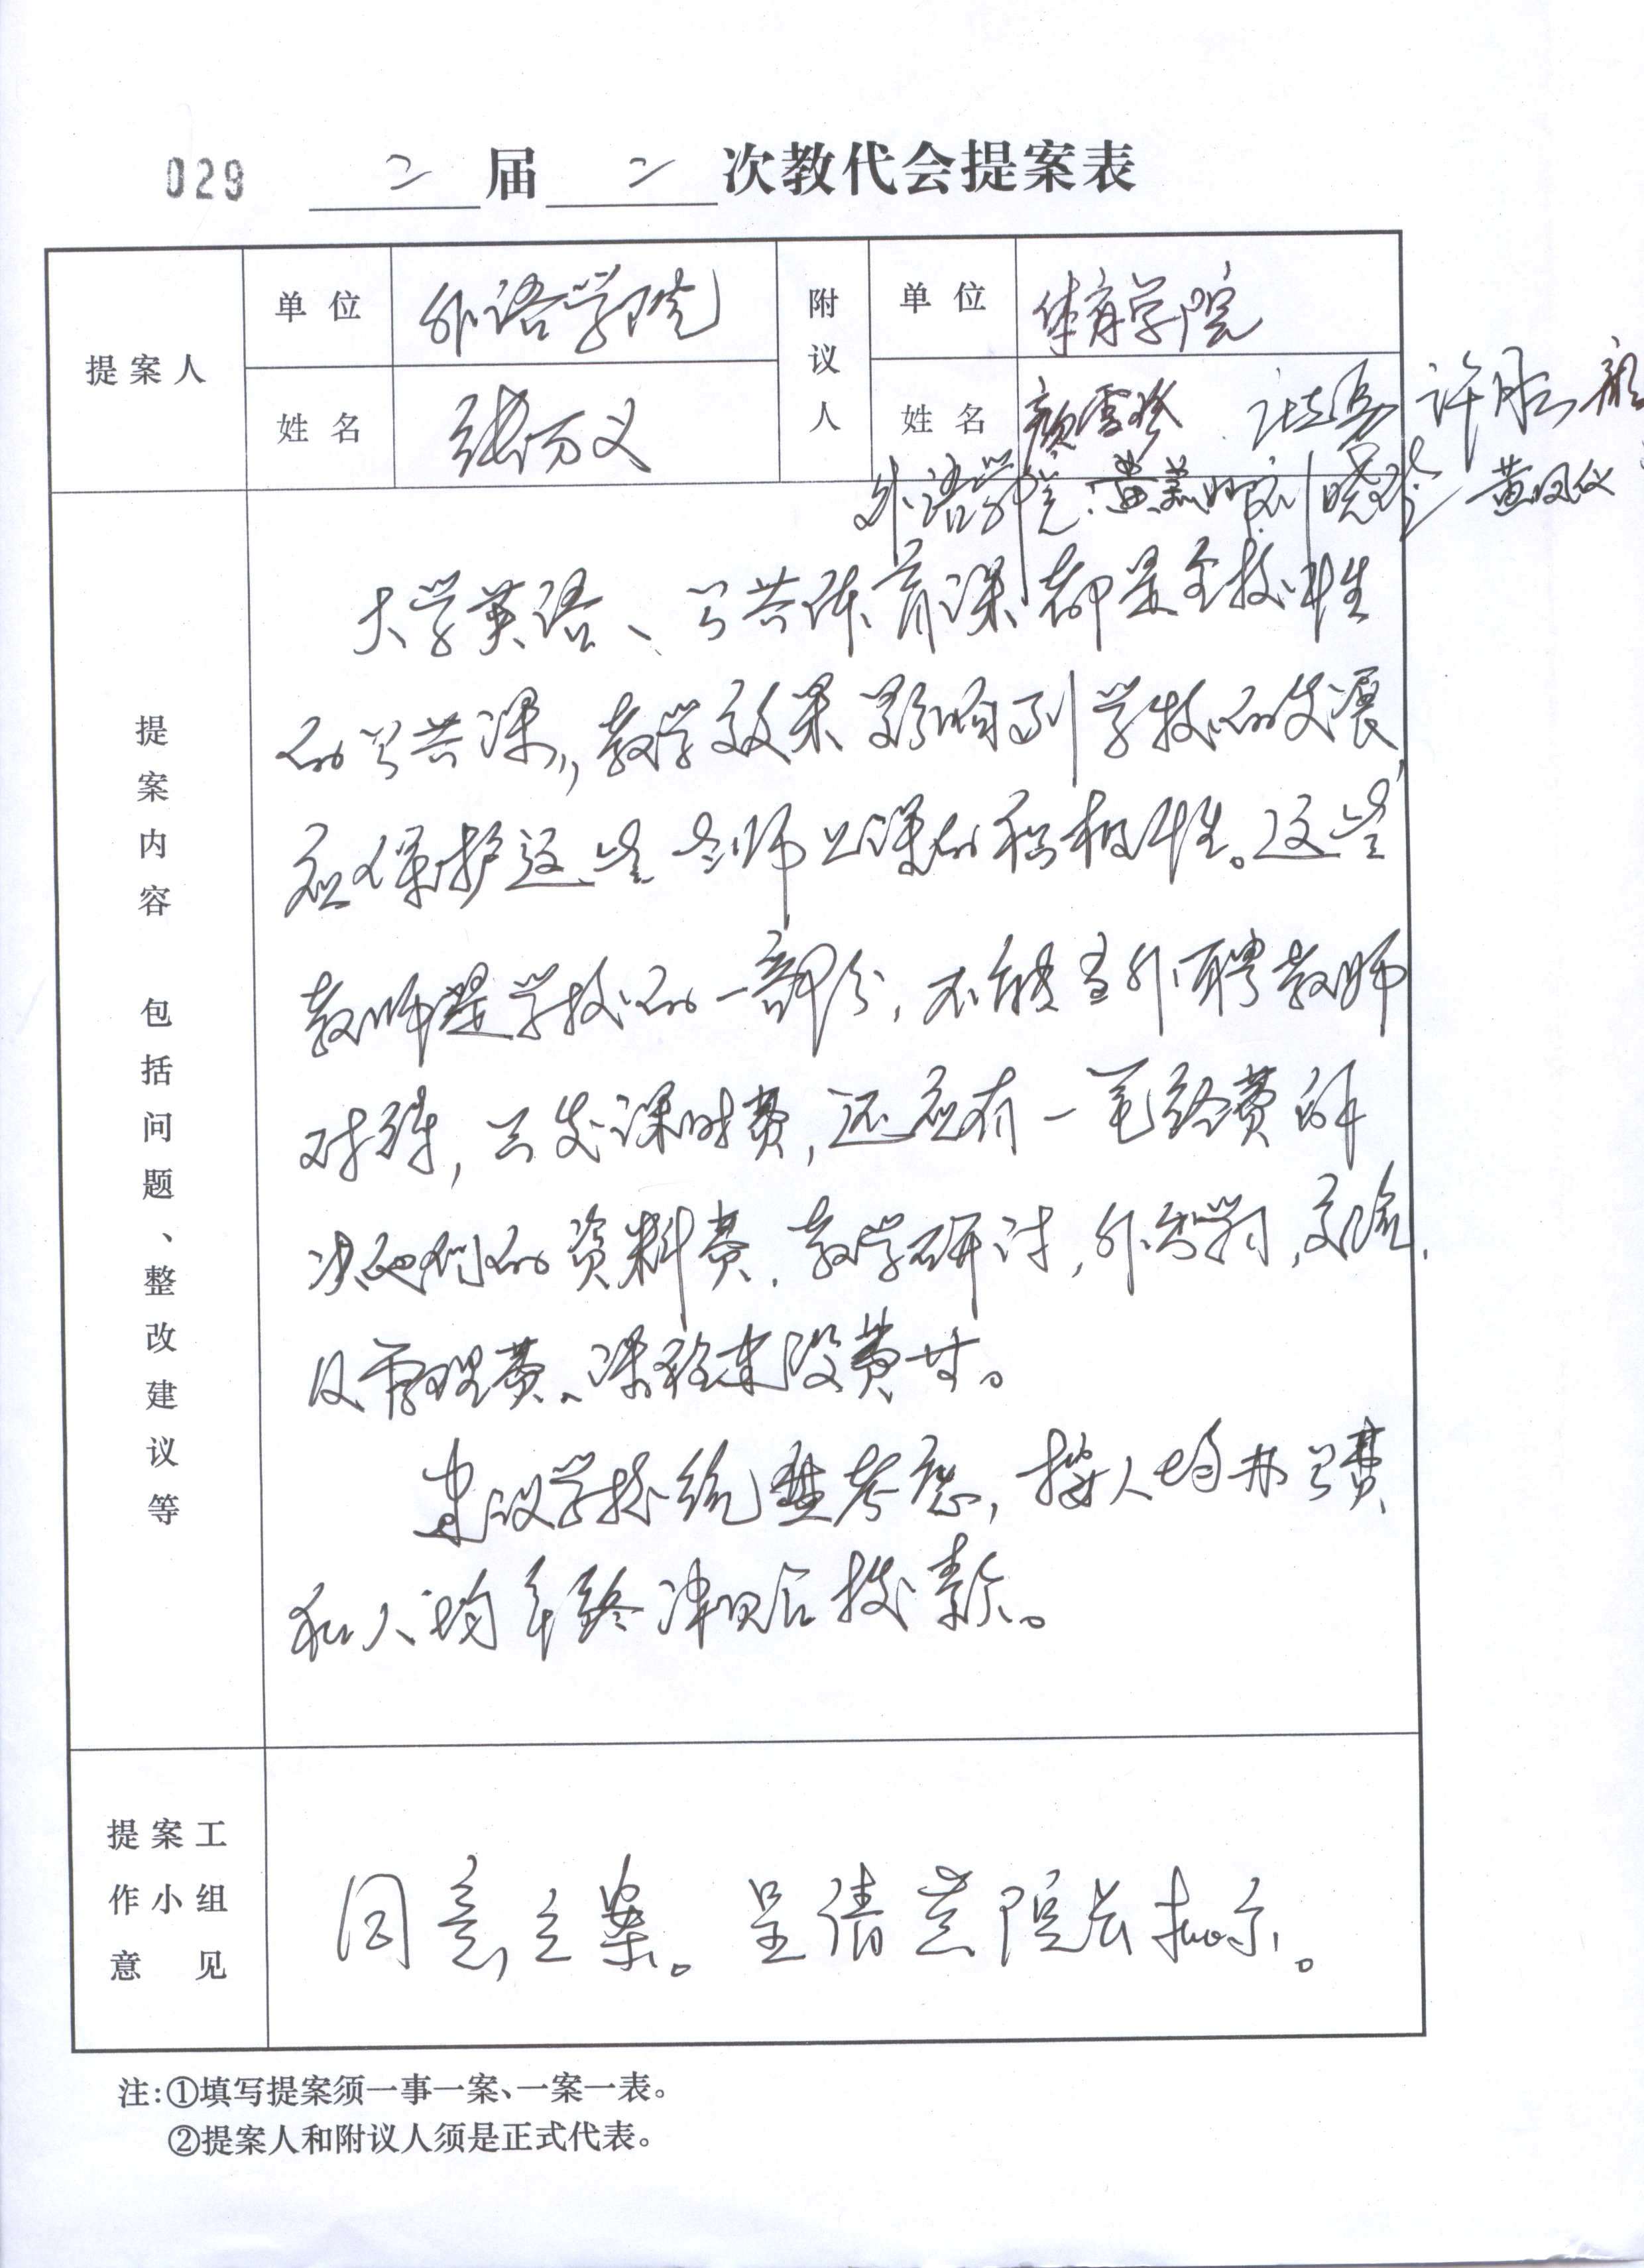 029 二届二次教代会提案表
提案人 单位 外语学院 附议人 单位 体育学院
姓名 张万义 姓名 颜雪珍 许月
外语学院:黄 刘晓 黄凤仪
提案内容 包括问题、整改建议等
大学英语、公共体育课都是全校性
的公共课,教学效果影响到学校的发展,
应保护这些老师上课的积极性。这些
教师是学校的一部分,不能当外聘教师
对待,只发课时费,还应有一笔经费解
决他们的资料费.教学研讨,外出学习,交流,
及管理费、课程建设费等。
建议学校统整考虑,按人均办公费
和人均年终津贴合拨款。
提案工作小组意见
同意立案。呈请黄院长批示。
注:①填写提案须一事一案、一案一表。
②提案人和附议人须是正式代表。